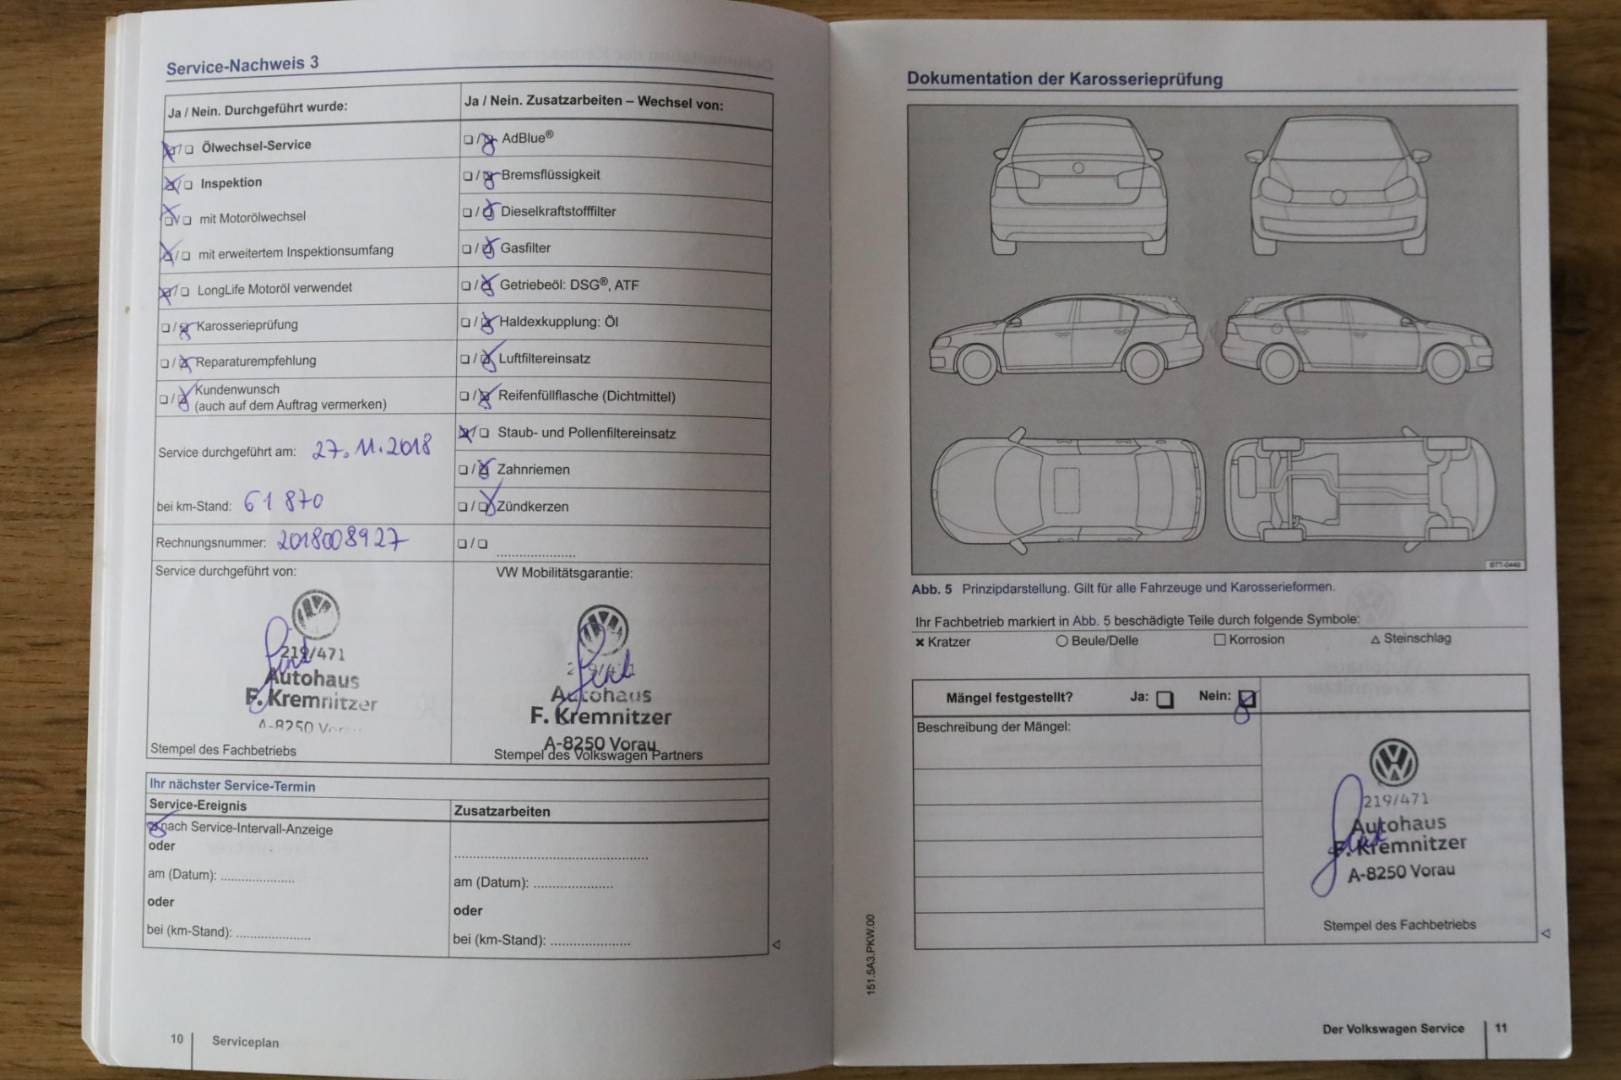 Service-Nachweis 3
Ja / Nein. Durchgeführt wurde:
Ölwechsel-Service
Inspektion
mit Motorölwechsel
mit erweitertem Inspektionsumfang
LongLife Motoröl verwendet
Karosserieprüfung
Reparaturempfehlung
Kundenwunsch
(auch auf dem Auftrag vermerken)
Service durchgeführt am: 27.11.2018
bei km-Stand: 61 870
Rechnungsnummer: 2018008927
Ja / Nein. Zusatzarbeiten – Wechsel von:
AdBlue®
Bremsflüssigkeit
Dieselkraftstofffilter
Gasfilter
Getriebeöl: DSG®, ATF
Haldexkupplung: Öl
Luftfiltereinsatz
Reifenfüllflasche (Dichtmittel)
Staub- und Pollenfiltereinsatz
Zahnriemen
Zündkerzen
Service durchgeführt von:
219/471
Autohaus
F. Kremnitzer
A-8250
Stempel des Fachbetriebs
VW Mobilitätsgarantie:
Autohaus
F. Kremnitzer
A-8250 Vorau
Stempel des Volkswagen Partners
Ihr nächster Service-Termin
Service-Ereignis
nach Service-Intervall-Anzeige
oder
am (Datum): ....................
oder
bei (km-Stand): ....................
Zusatzarbeiten
am (Datum): ....................
oder
bei (km-Stand): ....................
10 Serviceplan
Dokumentation der Karosserieprüfung
Abb. 5 Prinzipdarstellung. Gilt für alle Fahrzeuge und Karosserieformen.
Ihr Fachbetrieb markiert in Abb. 5 beschädigte Teile durch folgende Symbole:
Kratzer
Beule/Delle
Korrosion
Steinschlag
Mängel festgestellt? Ja: Nein:
Beschreibung der Mängel:
219/471
Autohaus
F. Kremnitzer
A-8250 Vorau
Stempel des Fachbetriebs
151.5A3.PKW.00
Der Volkswagen Service 11